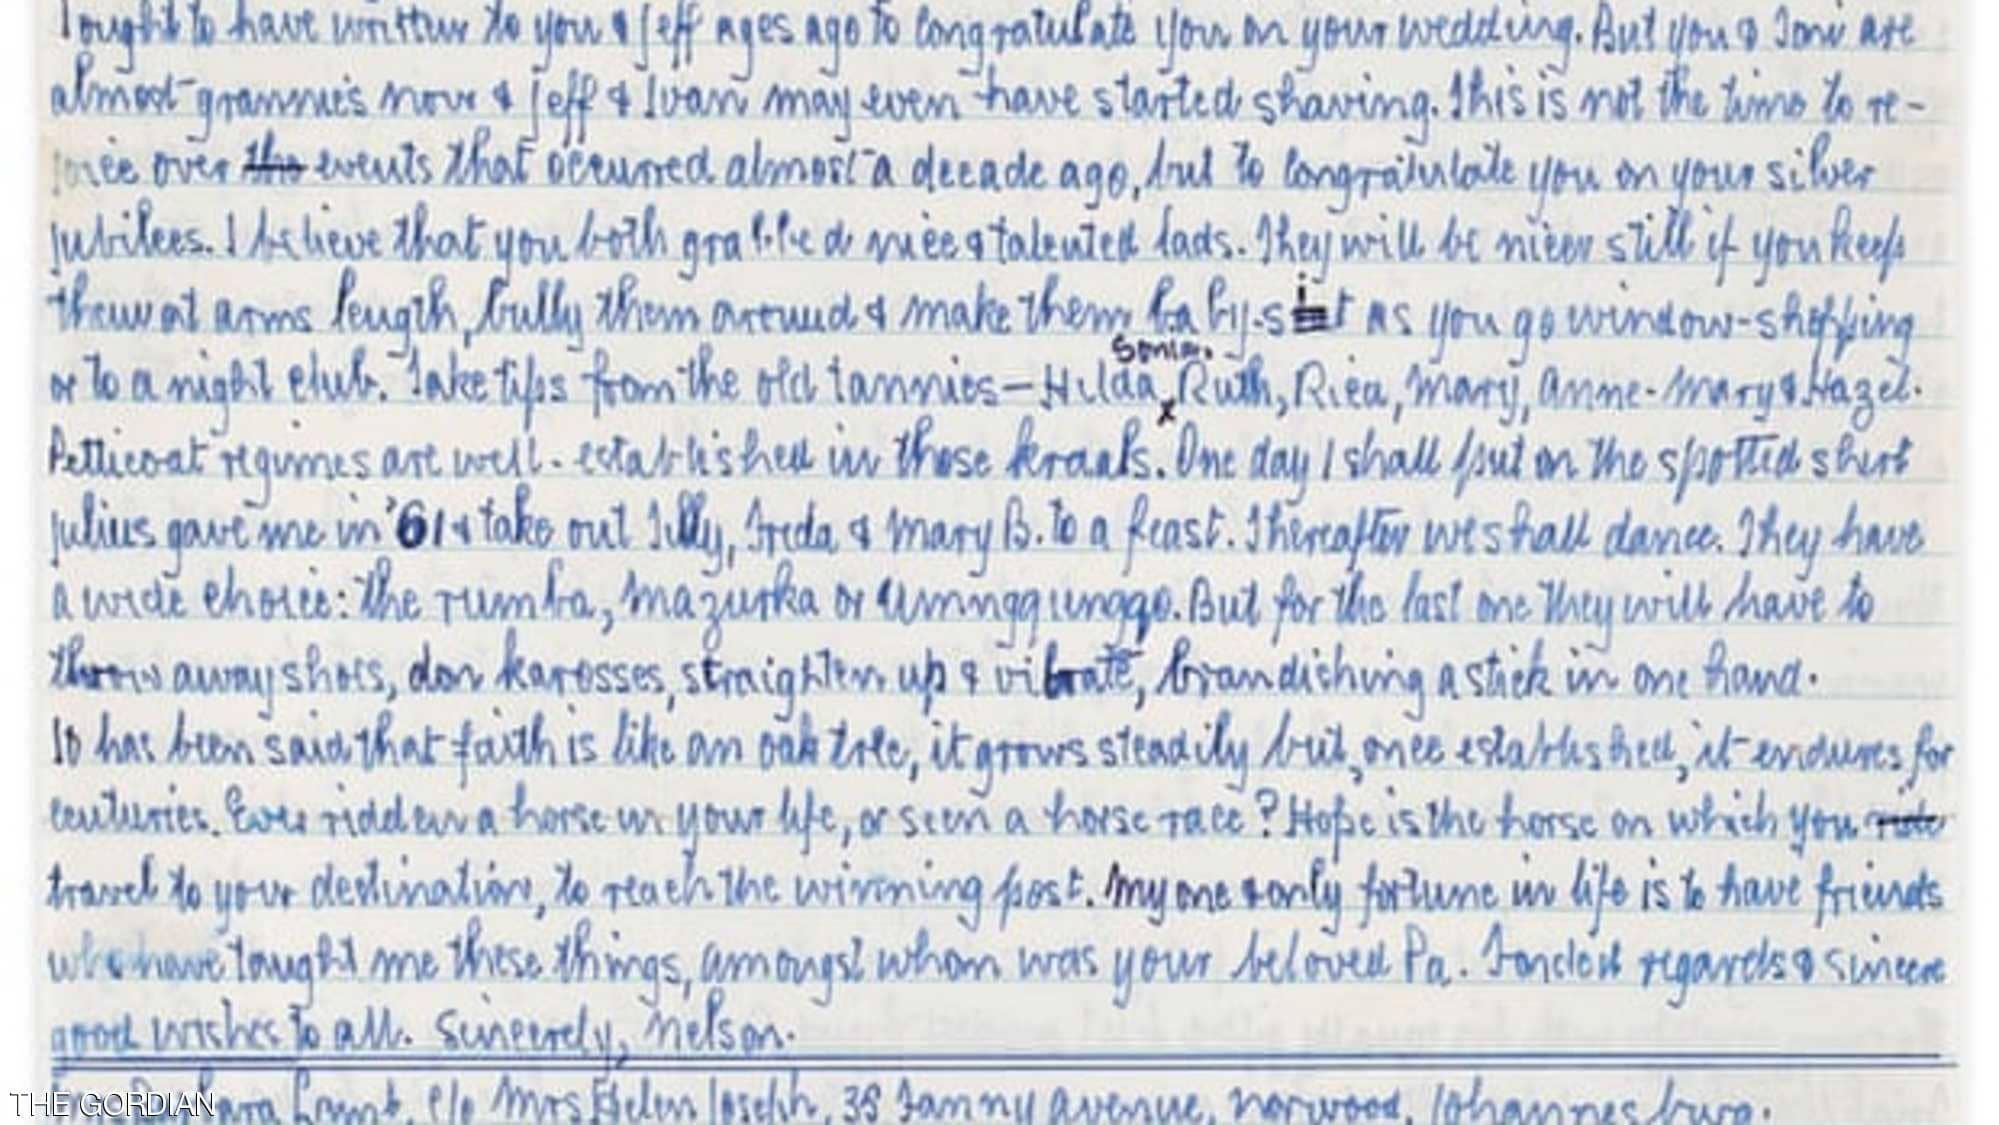 I ought to have written to you & Jeff ages ago to congratulate you on your wedding. But you & Toni are
almost grannies now & Jeff & Ivan may even have started shaving. This is not the time to re-
joice over the events that occurred almost a decade ago, but to congratulate you on your silver
jubilees. I believe that you both grabbed nice & talented lads. They will be nicer still if you keep
them at arms length, bully them around & make them baby-sit as you go window-shopping
or to a night club. Take tips from the old tannies — Hilda, Sonia, Ruth, Rica, Mary, Anne-Mary & Hazel.
Petticoat regimes are well-established in those kraals. One day I shall put on the spotted shirt
Julius gave me in '61 & take out Tilly, Freda & Mary B. to a feast. Thereafter we shall dance. They have
a wide choice: the rumba, mazurka or umngqungqo. But for the last one they will have to
throw away shoes, don karosses, straighten up & vibrate, brandishing a stick in one hand.
It has been said that faith is like an oak tree, it grows steadily but, once established, it endures for
centuries. Ever ridden a horse in your life, or seen a horse race? Hope is the horse on which you ride
travel to your destination, to reach the winning post. My one & only fortune in life is to have friends
who have taught me these things, amongst whom was your beloved Pa. Fondest regards & sincere
good wishes to all. Sincerely, Nelson.
Lamb, c/o Mrs Helen Joseph, 35 Fanny Avenue, Norwood, Johannesburg.
THE GORDIAN